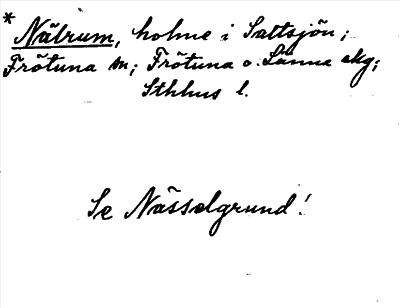 * Nätrum, holme i Saltsjön;
Frötuna sn; Frötuna o. Länna skg;
Sthlms l.
Se Nässelgrund!